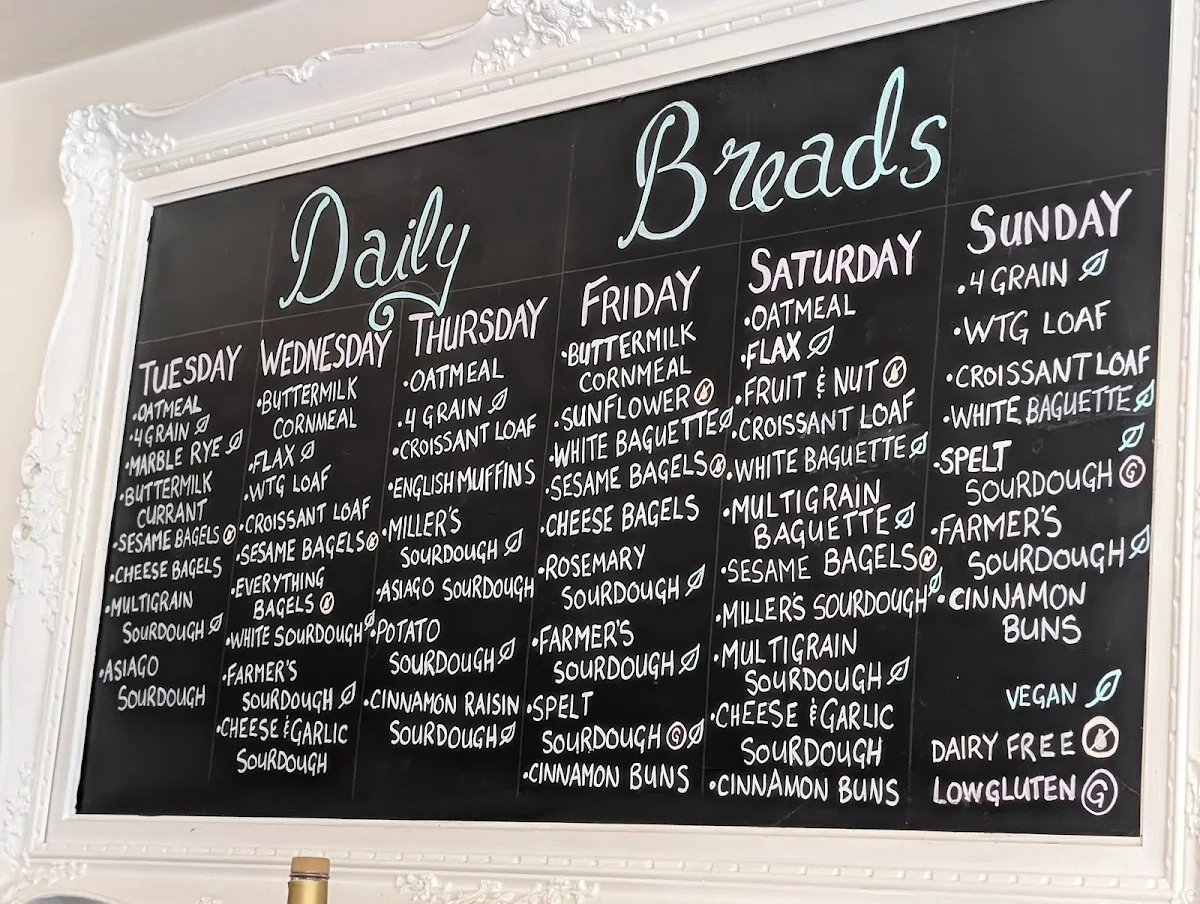 Daily Breads
TUESDAY
•OATMEAL
•4 GRAIN
•MARBLE RYE
•BUTTERMILK
CURRANT
•SESAME BAGELS
•CHEESE BAGELS
•MULTIGRAIN
SOURDOUGH
•ASIAGO
SOURDOUGH
WEDNESDAY
•BUTTERMILK
CORNMEAL
•FLAX
•WTG LOAF
•CROISSANT LOAF
•SESAME BAGELS
•EVERYTHING
BAGELS
•WHITE SOURDOUGH
•FARMER'S
SOURDOUGH
•CHEESE & GARLIC
SOURDOUGH
THURSDAY
•OATMEAL
•4 GRAIN
•CROISSANT LOAF
•ENGLISH MUFFINS
•MILLER'S
SOURDOUGH
•ASIAGO SOURDOUGH
•POTATO
SOURDOUGH
•CINNAMON RAISIN
SOURDOUGH
FRIDAY
•BUTTERMILK
CORNMEAL
•SUNFLOWER
•WHITE BAGUETTE
•SESAME BAGELS
•CHEESE BAGELS
•ROSEMARY
SOURDOUGH
•FARMER'S
SOURDOUGH
•SPELT
SOURDOUGH G
•CINNAMON BUNS
SATURDAY
•OATMEAL
•FLAX
•FRUIT & NUT
•CROISSANT LOAF
•WHITE BAGUETTE
•MULTIGRAIN
BAGUETTE
•SESAME BAGELS
•MILLER'S SOURDOUGH
•MULTIGRAIN
SOURDOUGH
•CHEESE & GARLIC
SOURDOUGH
•CINNAMON BUNS
SUNDAY
•4 GRAIN
•WTG LOAF
•CROISSANT LOAF
•WHITE BAGUETTE
•SPELT
SOURDOUGH G
•FARMER'S
SOURDOUGH
•CINNAMON
BUNS
VEGAN
DAIRY FREE
LOW GLUTEN G